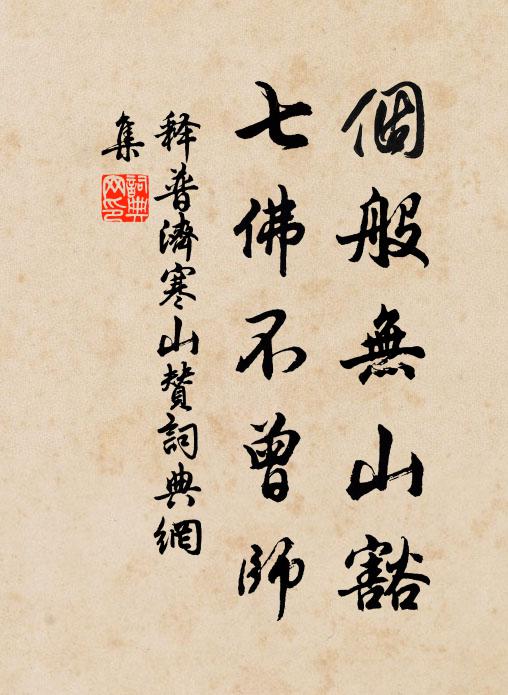 個般無山豁
七佛不曾師
释普濟寒山贊詞典網
集
詞典
网印